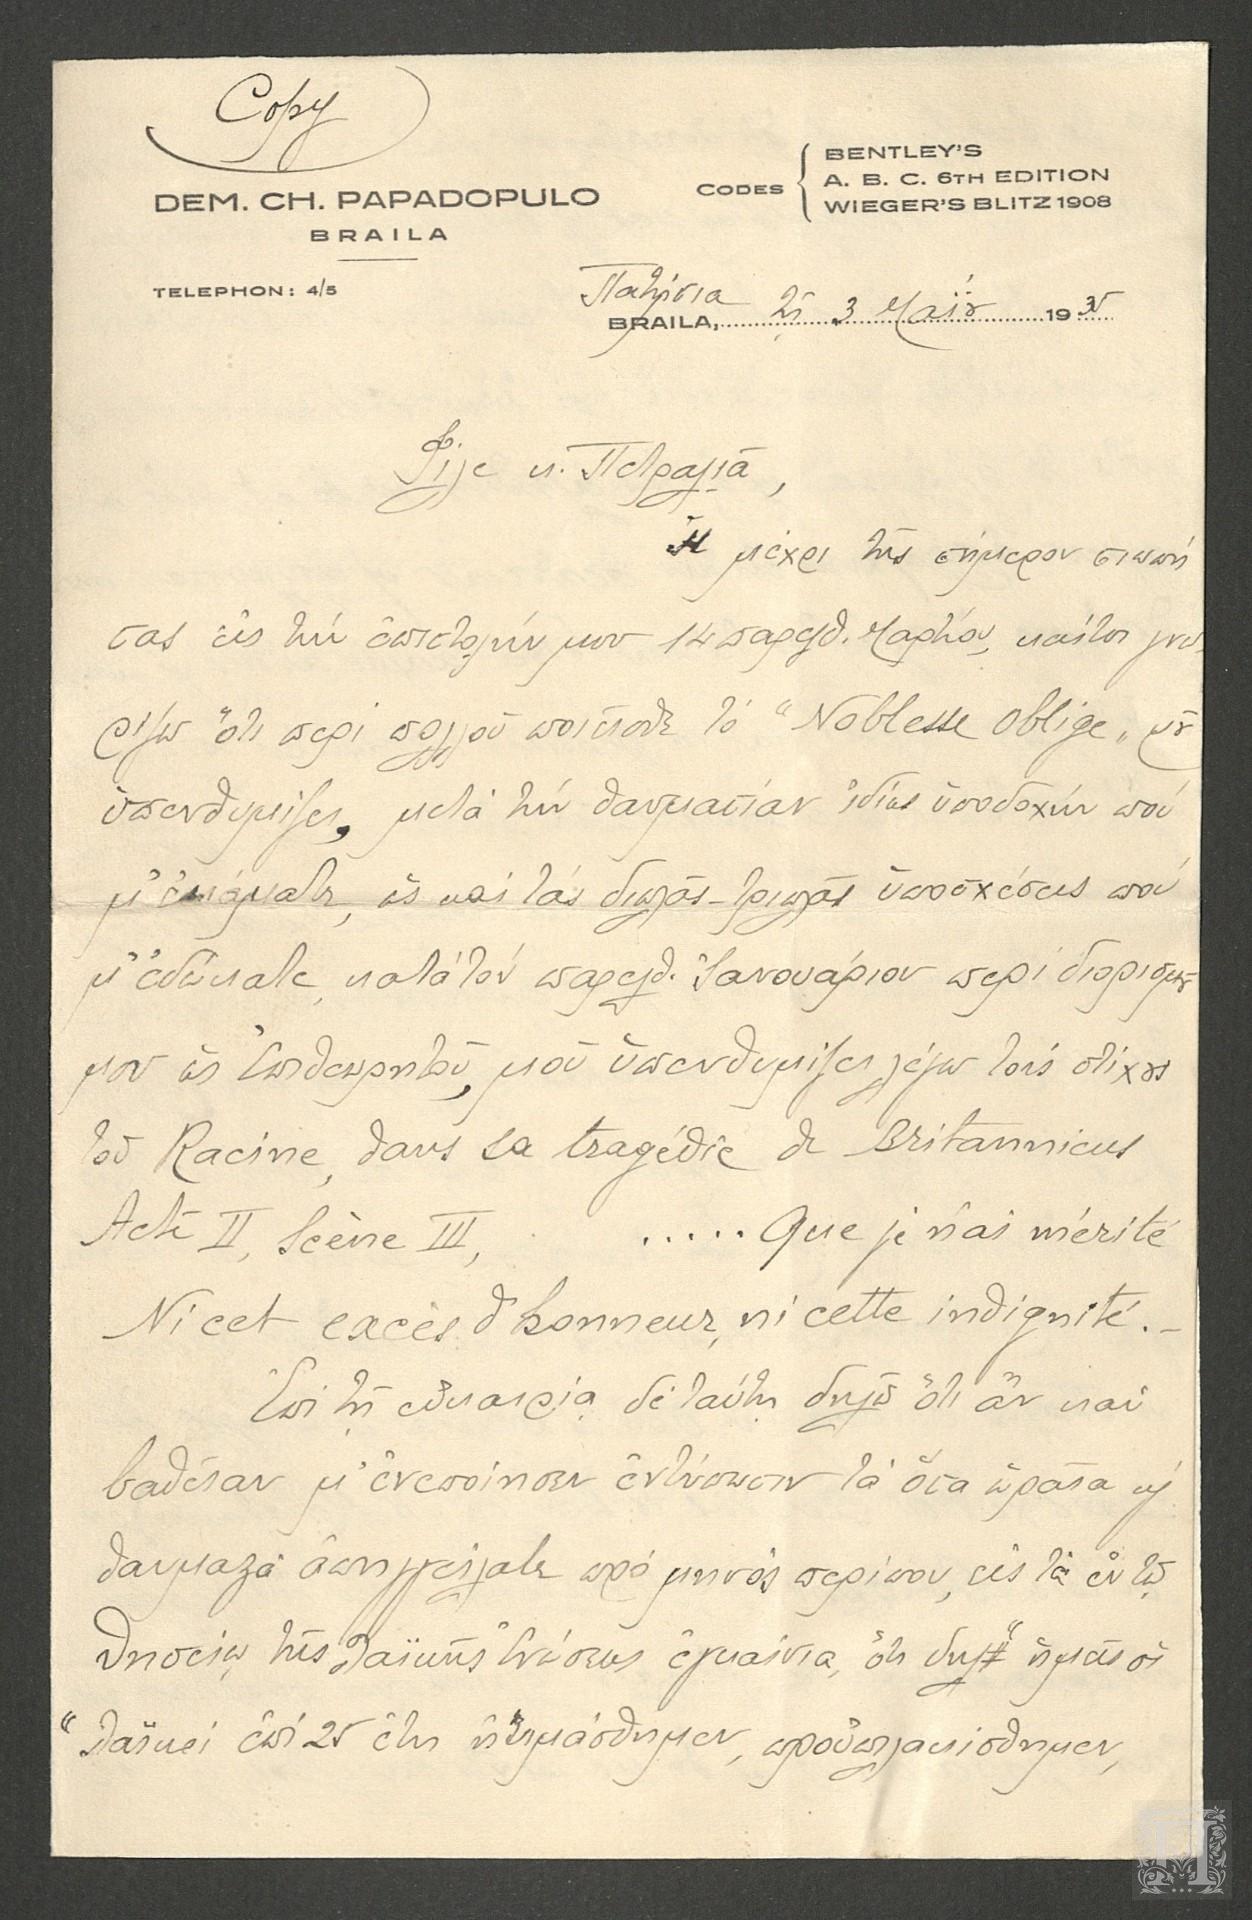 Copy
DEM. CH. PAPADOPULO
BRAILA
TELEPHON: 4/5
CODES
BENTLEY'S
A. B. C. 6TH EDITION
WIEGER'S BLITZ 1908
Πατήσια
BRAILA, τῇ 3 Μαΐου 1935
Φίλε κ. Πετραλιᾶ,
Ἡ μέχρι τῆς σήμερον σιωπή
σας εἰς τὴν ἐπιστολήν μου 14 παρελθ. Μαρτίου, καίτοι γνω
ρίζω ὅτι περὶ πολλοῦ ποιεῖσθε τό "Noblesse oblige„ μοῦ
ὑπενθυμίζει, μετὰ τὴν θαυμασίαν ἰδίως ὑποδοχὴν ποὺ
μ' ἐκάματε, ὡς καὶ τὰς διπλᾶς-τριπλᾶς ὑποσχέσεις ποὺ
μ' ἐδώκατε, κατὰ τὸν παρελθ. Ἰανουάριον περὶ διορισμοῦ
μου ὡς Ἐπιθεωρητοῦ, μοῦ ὑπενθυμίζει λέγω τοὺς στίχους
τοῦ Racine, dans sa tragédie de Britannicus
Acte II, Scène III, ..... Que je n'ai mérité
Ni cet excès d'honneur, ni cette indignité.-
Ἐπὶ τῇ εὐκαιρίᾳ δὲ ταύτῃ δηλῶ ὅτι ἂν καὶ
βαθεῖαν μ' ἐνεποίησεν ἐντύπωσιν τὰ ὅσα ὡραῖα κ
θαυμαστὰ ἀπηγγείλατε πρὸ μηνὸς περίπου, εἰς τὰ ἐν τῷ
Θησείῳ τῆς Λαϊκῆς Ἑνώσεως ἐγκαίνια, ὅτι δηλ " ἡμεῖς οἱ
"Λαϊκοί ἐπὶ 25 ἔτη ἠτιμάσθημεν, προὐπηλακίσθημεν,